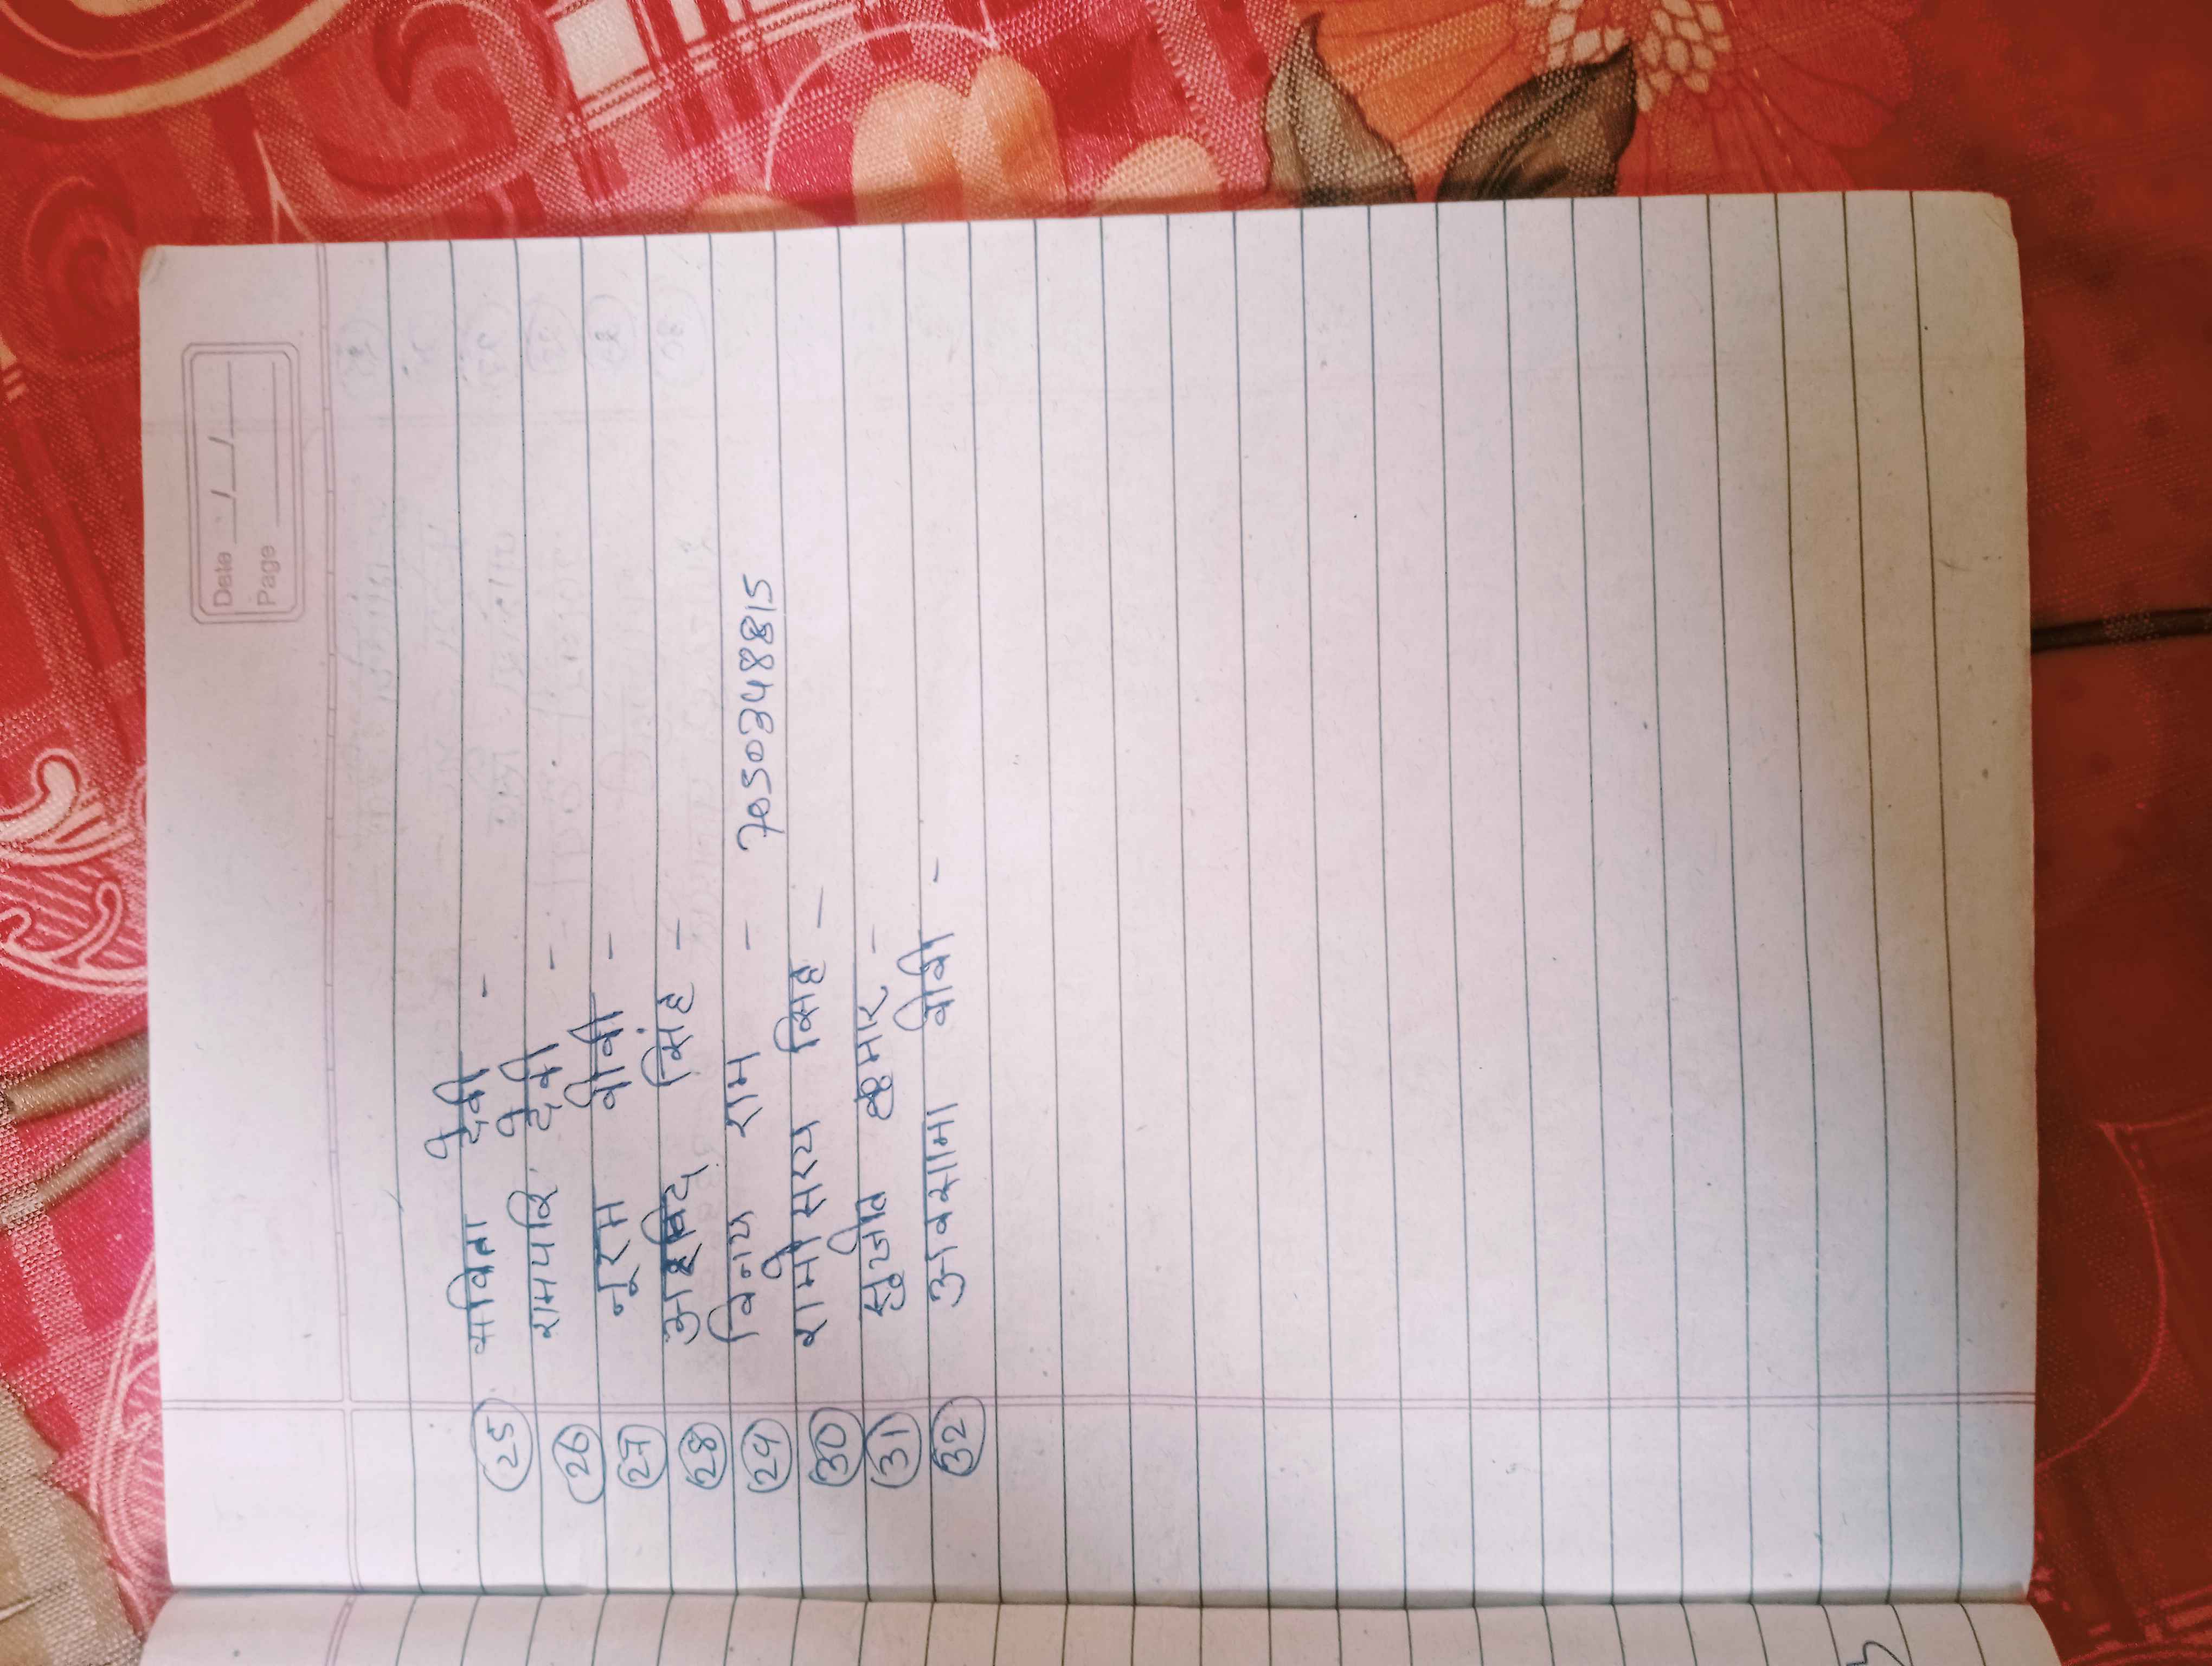 Date __/__/__
Page ______
25 सविता देवी -
26 रामपरि देवी -
27 नूरस बीबी -
28 अरविंद सिंह -
29 विनय राम - 7050348815
30 रामेसरय सिंह -
31 सुजीत कुमार -
32 अवसामा बीबी -